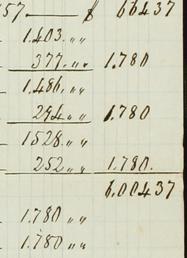 57 ——— $ 66437
1.403. „ „
377. „ „ 1.780
1.486. „ „
294. „ „ 1.780
1528. „ „
252. „ „ 1.780.
6.00437
1.780 „ „
1.780 „ „